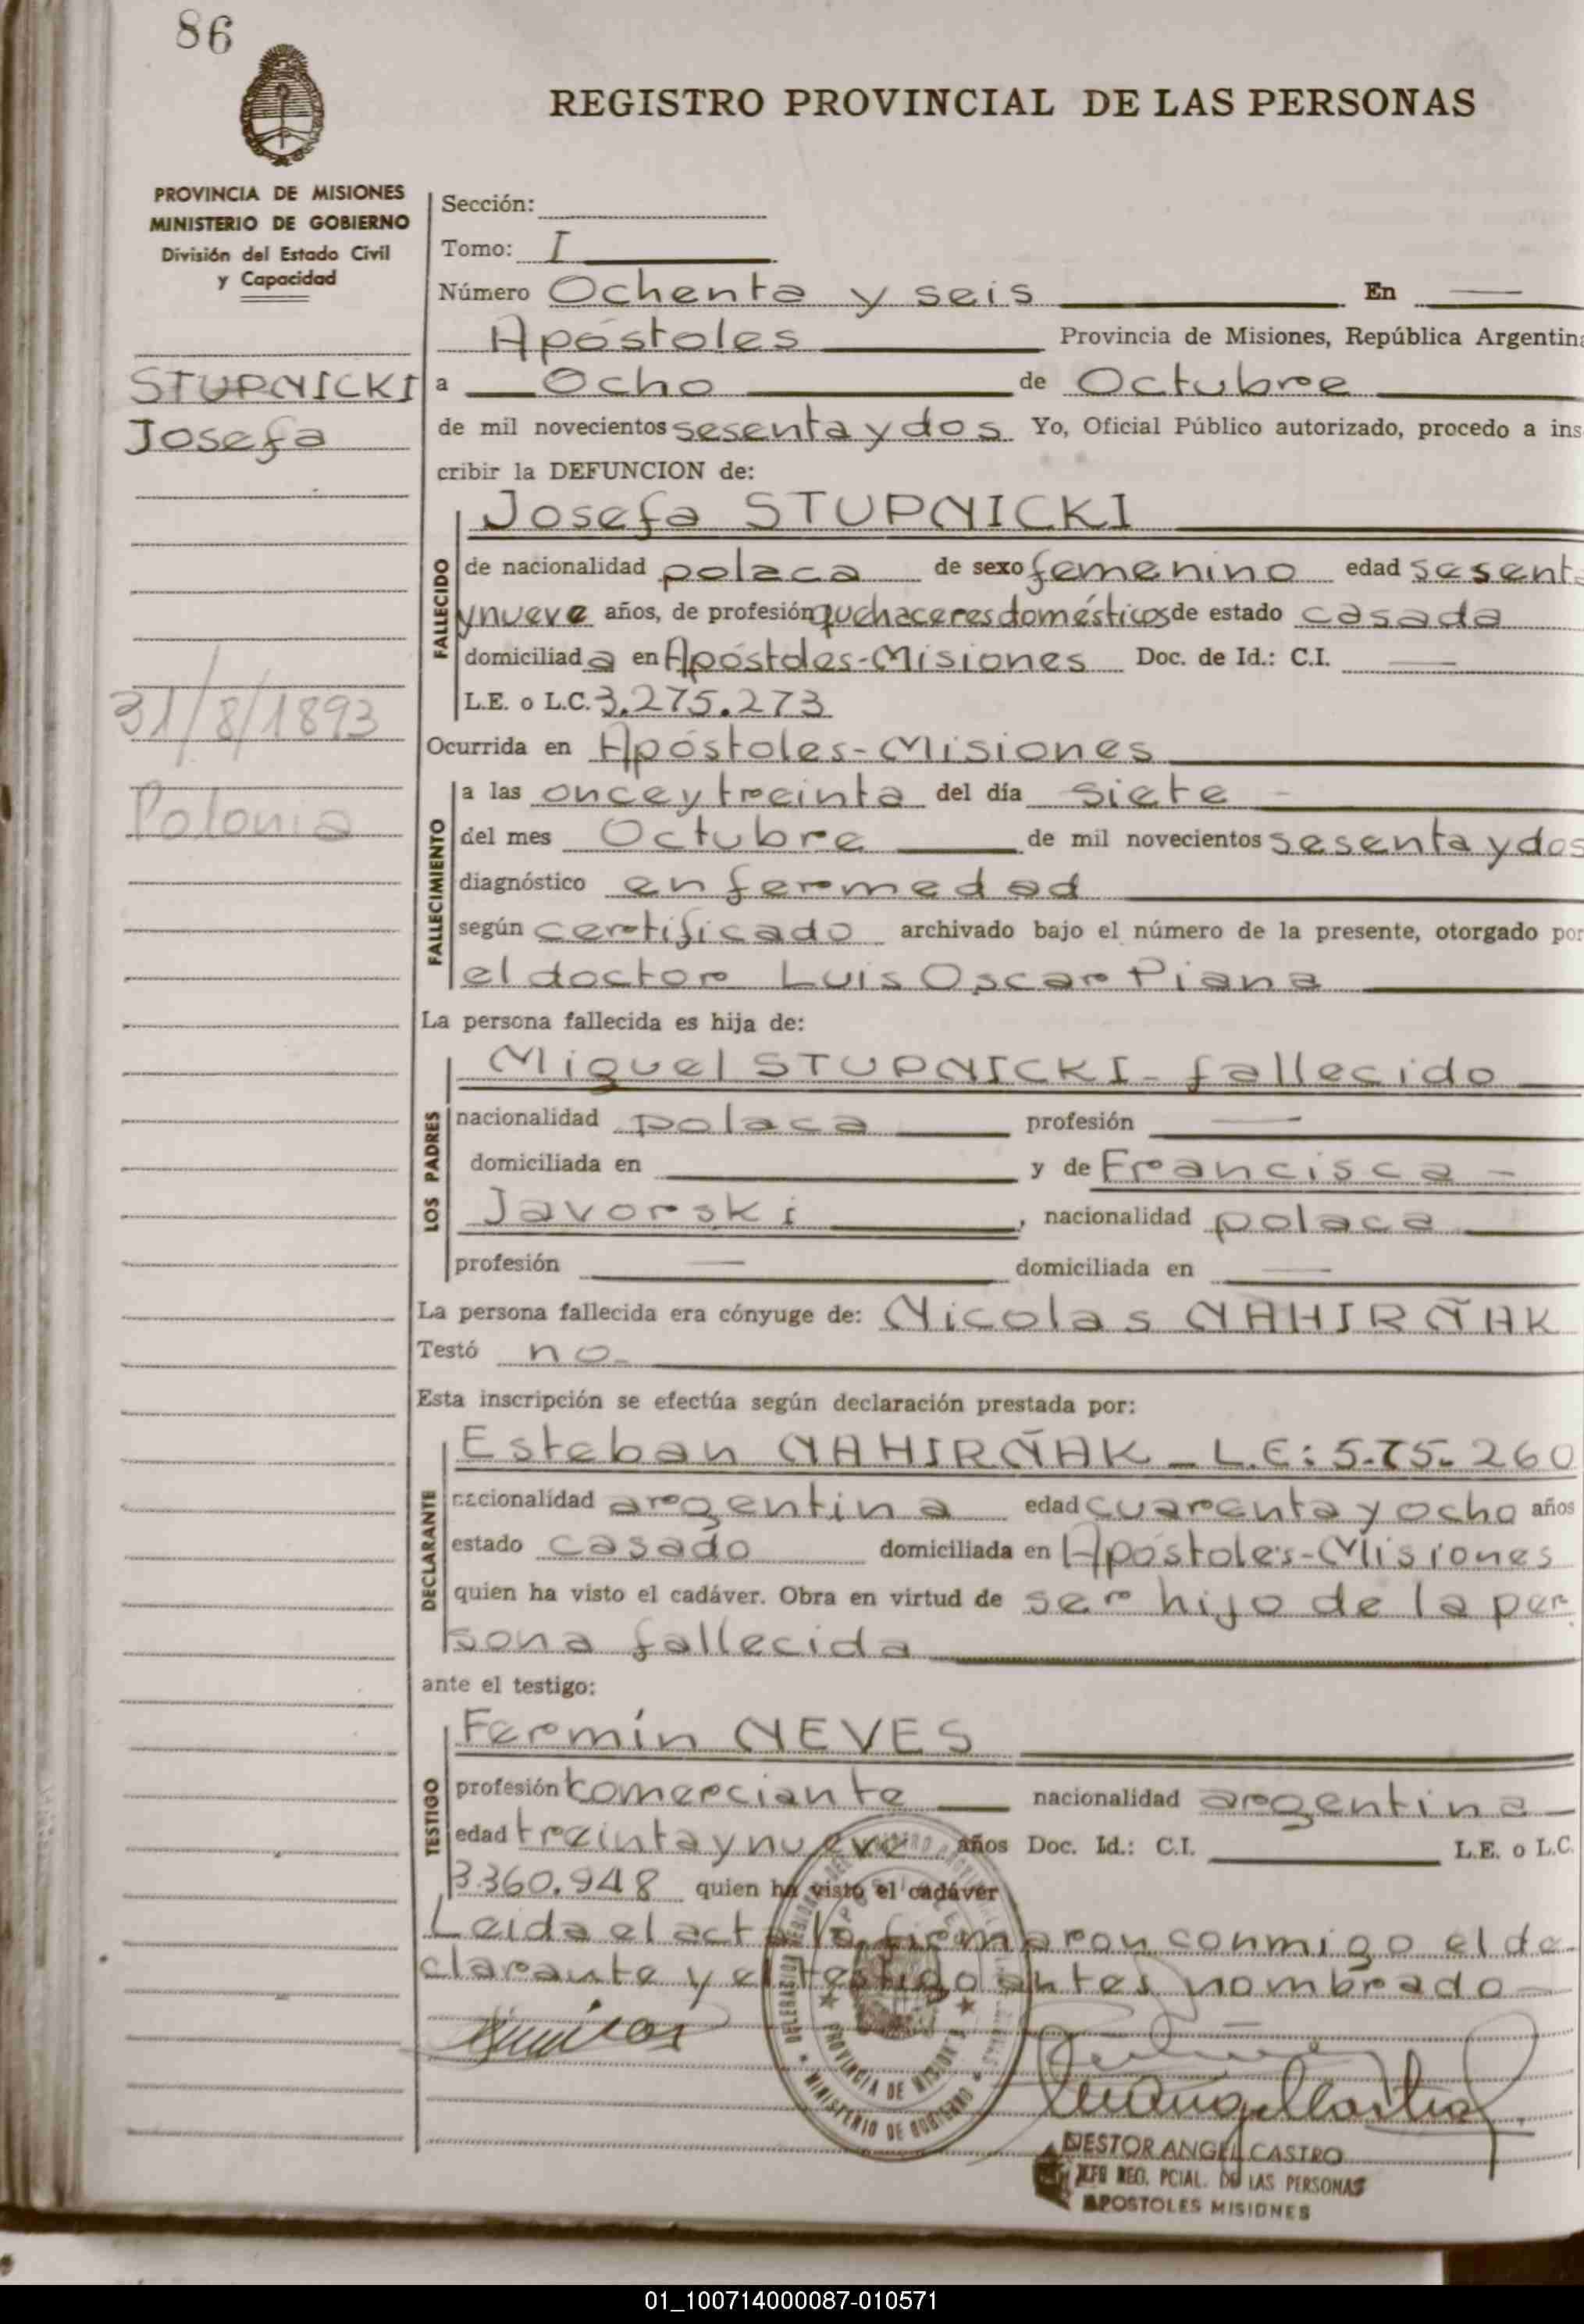 86
REGISTRO PROVINCIAL DE LAS PERSONAS
PROVINCIA DE MISIONES
MINISTERIO DE GOBIERNO
División del Estado Civil
y Capacidad
STUPNICKI
Josefa
31/8/1893
Polonia
Sección:
Tomo: I
Número Ochenta y seis En —
Apóstoles Provincia de Misiones, República Argentina
a Ocho de Octubre
de mil novecientos sesenta y dos Yo, Oficial Público autorizado, procedo a ins
cribir la DEFUNCION de:
Josefa STUPNICKI
FALLECIDO
de nacionalidad polaca de sexo femenino edad sesenta
y nueve años, de profesión quehaceres domésticos de estado casada
domiciliada en Apóstoles-Misiones Doc. de Id.: C.I. —
L.E. o L.C. 3.275.273
Ocurrida en Apóstoles-Misiones
FALLECIMIENTO
a las once y treinta del día siete -
del mes Octubre de mil novecientos sesenta y dos
diagnóstico enfermedad
según certificado archivado bajo el número de la presente, otorgado por
el doctor Luis Oscar Piana
La persona fallecida es hija de:
LOS PADRES
Miguel STUPNICKI - fallecido
nacionalidad polaca profesión —
domiciliada en y de Francisca -
Javorski, nacionalidad polaca
profesión — domiciliada en —
La persona fallecida era cónyuge de: Nicolas NAHIRÑAK
Testó no-
Esta inscripción se efectúa según declaración prestada por:
DECLARANTE
Esteban NAHIRÑAK - L.E: 260
nacionalidad argentina edad cuarenta y ocho años
estado casado domiciliada en Apóstoles-Misiones
quien ha visto el cadáver. Obra en virtud de ser hijo de la per
sona fallecida
ante el testigo:
TESTIGO
Fermín NEVES
profesión comerciante nacionalidad argentina -
edad treinta y nueve años Doc. Id.: C.I. L.E. o L.C.
3.360.948 quien ha visto el cadáver
Leida el acta la firmaron conmigo el de
clarante y el testigo antes nombrado -
PROVINCIA DE MISIONES
MINISTERIO DE GOBIERNO
NESTOR ANGEL CASTRO
JEFE REG. PCIAL. DE LAS PERSONAS
APOSTOLES MISIONES
01_100714000087-010571